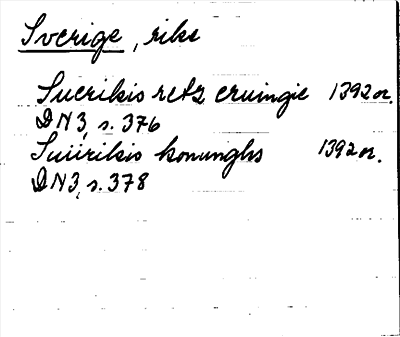 Sverige, rike
Suerikis retz eruingie 1392 or.
DN3, s. 376
Suiirikis konunghs 1392 or.
DN3, s. 378